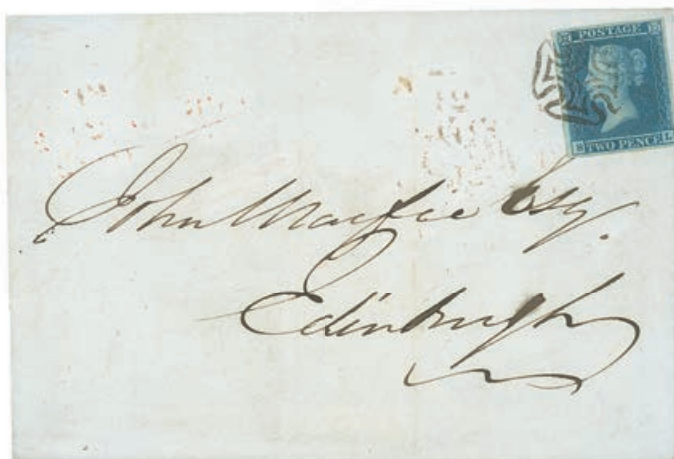 POSTAGE
TWO PENCE
L
John Macfie Esq.
Edinburgh